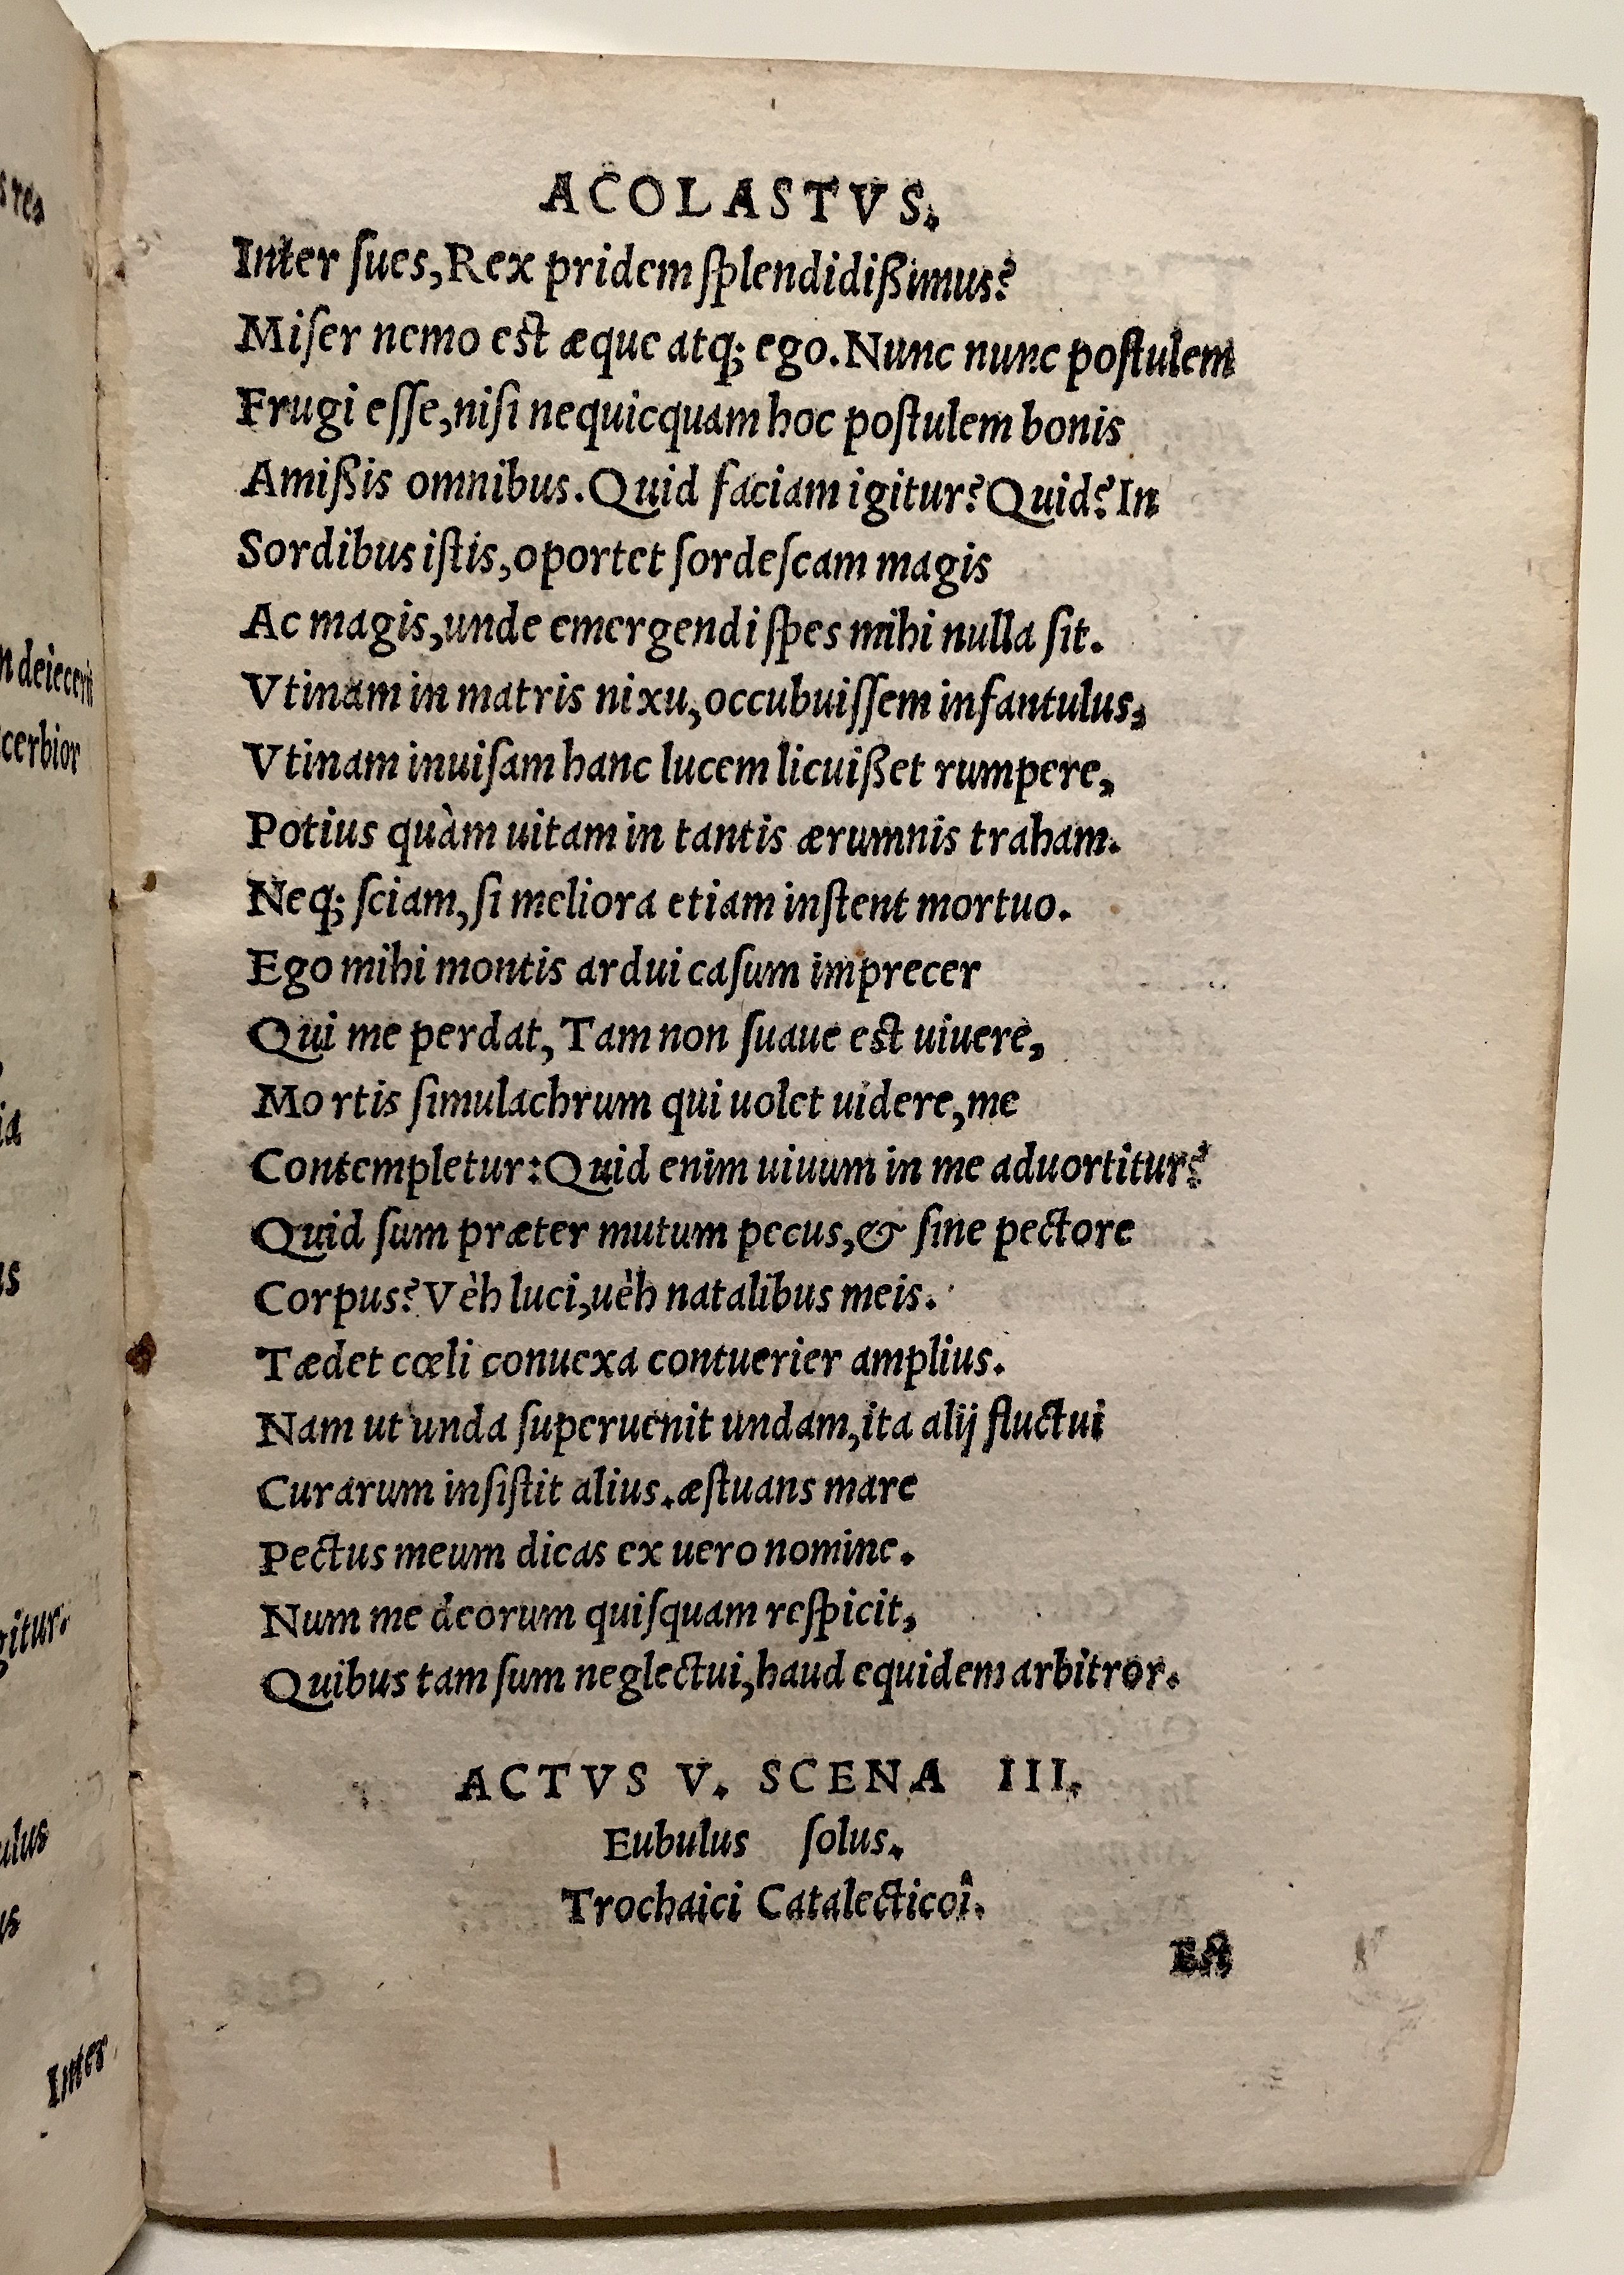 ACOLASTVS.
Inter ſues, Rex pridem ſplendidißimus?
Miſer nemo est æque atq; ego. Nunc nunc poſtulem
Frugi eſſe, niſi nequicquam hoc poſtulem bonis
Amißis omnibus. Quid faciam igitur? Quid? In
Sordibus iſtis, oportet ſordeſcam magis
Ac magis, unde emergendi ſpes mihi nulla ſit.
Vtinam in matris nixu, occubuiſſem infantulus,
Vtinam inuiſam hanc lucem licuißet rumpere,
Potius quàm uitam in tantis ærumnis traham.
Neq; ſciam, ſi meliora etiam inſtent mortuo.
Ego mihi montis ardui caſum imprecer
Qui me perdat, Tam non ſuaue est uiuere,
Mortis ſimulachrum qui uolet uidere, me
Contempletur: Quid enim uiuum in me aduortitur?
Quid ſum præter mutum pecus, & ſine pectore
Corpus? Vèh luci, uèh natalibus meis.
Tædet cœli conuexa contuerier amplius.
Nam ut unda ſuperuenit undam, ita alij fluctui
Curarum inſiſtit alius. æſtuans mare
Pectus meum dicas ex uero nomine.
Num me deorum quiſquam reſpicit,
Quibus tam ſum neglectui, haud equidem arbitror.
ACTVS V. SCENA III.
Eubulus ſolus.
Trochaici Catalecticoî.
Eſt
deiecerit
cerbior
Inter